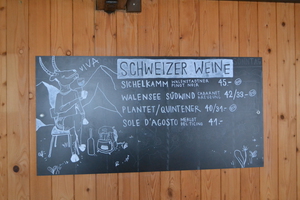 VIVA
SCHWEIZER WEINE
SICHELKAMM WALENSTADTER PINOT NOIR 45.-
WALENSEE SÜDWIND 42/33.-
PLANTET/QUINTENER 40/31.-
SOLE D'AGOSTO MERLOT DEL TICINO 44.-